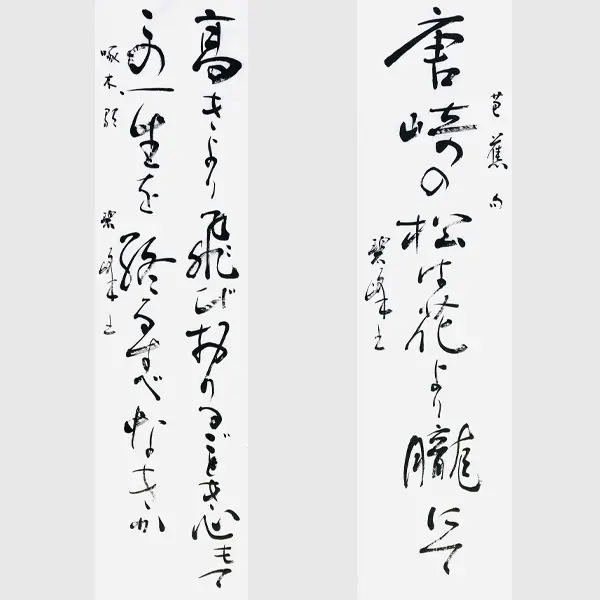 芭蕉句
唐崎の松は花より朧にて
高きより飛びおりるごとき心もて
この一生を終るすべなきか
啄木歌